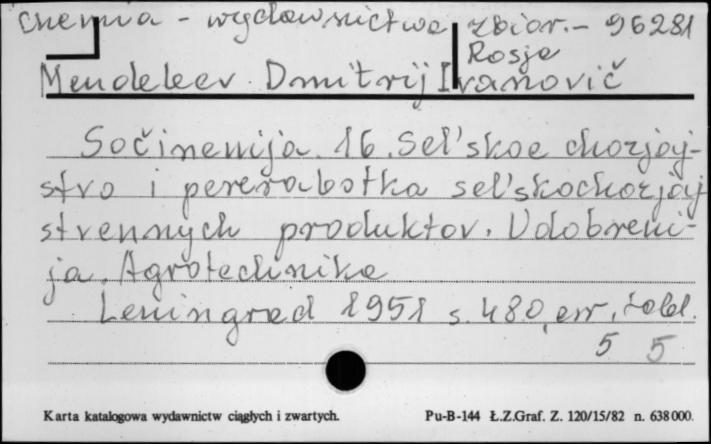 chemia - wydawnictwa zbior. - 96281
Rosja
Mendeleev Dmitrij Ivanovič
Sočinenija. 16. Sel'skoe chozjaj-
stvo i pererabotka sel'skochozjaj
stvennych produktov. Udobreni-
ja. Agrotechnika
Leningrad 1951 s. 480, err, tabl.
5 5
Karta katalogowa wydawnictw ciągłych i zwartych.
Pu-B-144 Ł.Z.Graf. Z. 120/15/82 n. 638000.